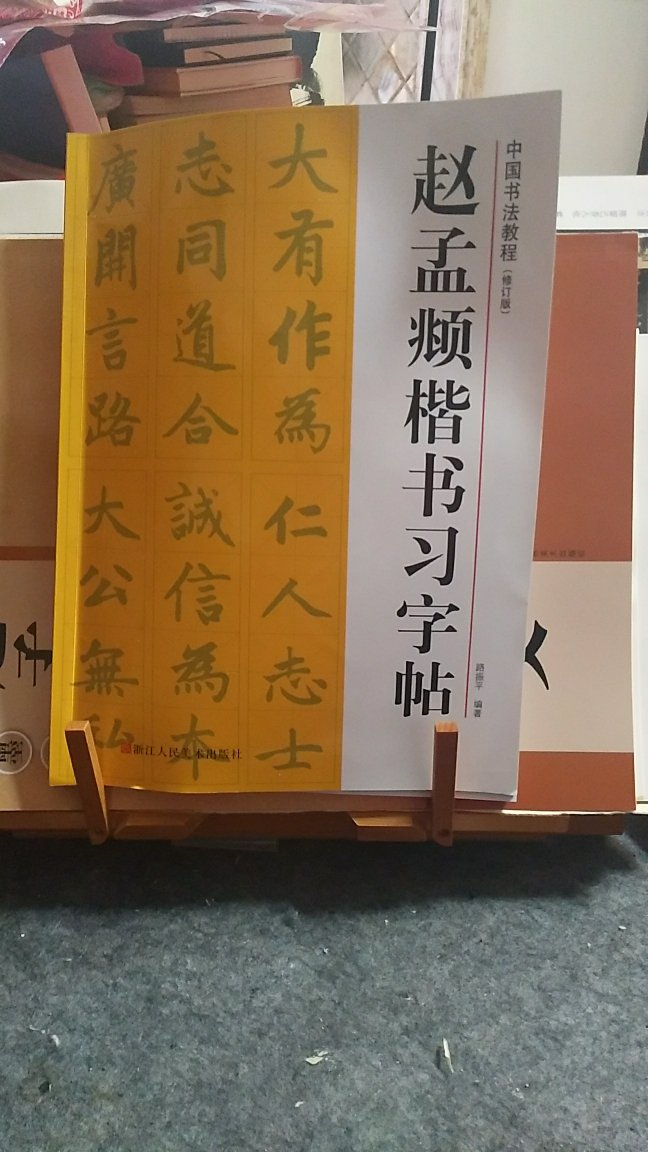 中国书法教程(修订版)
赵孟頫楷书习字帖
路振平 编著
大有作為仁人志士
志同道合誠信為本
廣開言路大公無私
浙江人民美术出版社